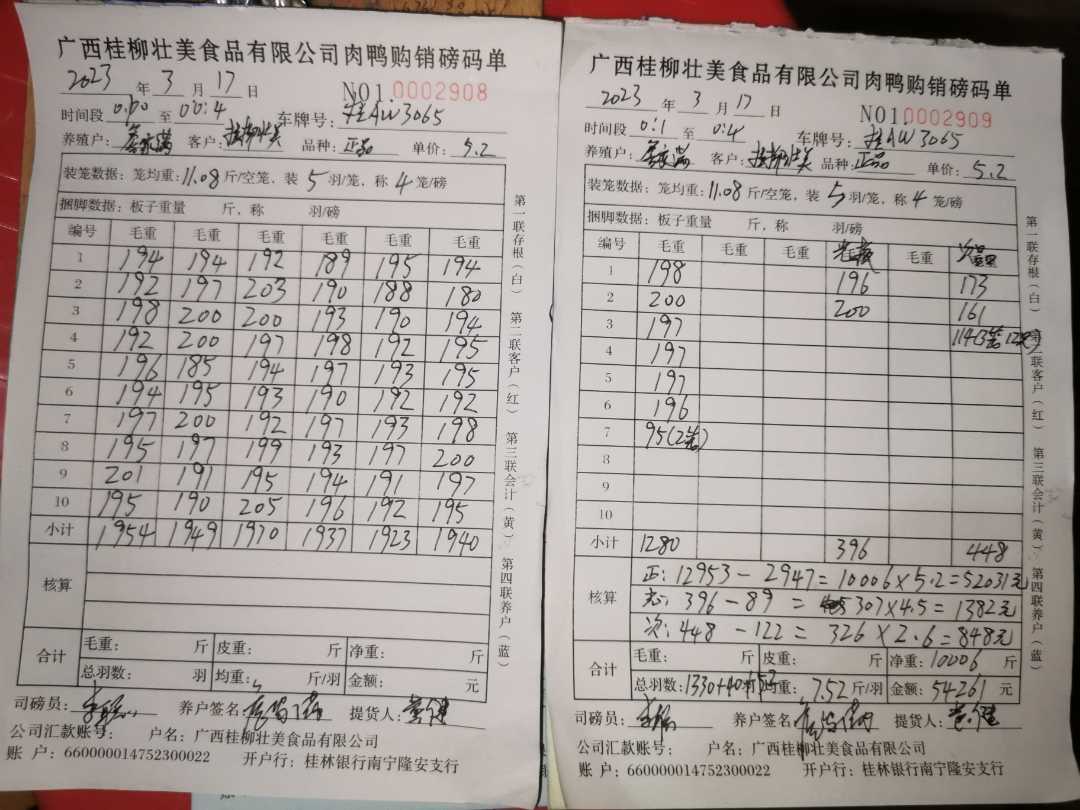 广西桂柳壮美食品有限公司肉鸭购销磅码单
2023 年 3 月 17 日 NO1 0002908
时间段 0:00 至 00:4 车牌号: 桂AW3065
养殖户: 客户: 桂柳壮美 品种: 正品 单价: 5.2
装笼数据: 笼均重: 11.08 斤/空笼, 装 5 羽/笼, 称 4 笼/磅
捆脚数据: 板子重量 斤, 称 羽/磅
编号 毛重 毛重 毛重 毛重 毛重 毛重
1 194 194 192 189 195 194
2 192 197 203 190 188 180
3 198 200 200 193 190 194
4 192 200 197 198 192 195
5 196 185 194 197 193 195
6 194 195 193 190 192 192
7 197 200 192 197 193 198
8 195 197 199 193 197 200
9 201 191 195 194 191 197
10 195 190 205 196 192 195
小计 1954 1949 1970 1937 1923 1940
核算
合计 毛重: 斤 皮重: 斤 净重: 斤
总羽数: 羽 均重: 斤/羽 金额: 元
司磅员: 养户签名: 提货人:
公司汇款账号: 户名: 广西桂柳壮美食品有限公司
账 户: 660000014752300022 开户行: 桂林银行南宁隆安支行
第一联存根(白) 第二联客户(红) 第三联会计(黄) 第四联养户(蓝)
广西桂柳壮美食品有限公司肉鸭购销磅码单
2023 年 3 月 17 日 NO1 0002909
时间段 0:1 至 0:4 车牌号: 桂AW3065
养殖户: 客户: 桂柳壮美 品种: 正品 单价: 5.2
装笼数据: 笼均重: 11.08 斤/空笼, 装 5 羽/笼, 称 4 笼/磅
捆脚数据: 板子重量 斤, 称 羽/磅
编号 毛重 毛重 毛重 毛重
1 198 196 173
2 200 200 161
3 197 114(3笼
4 197
5 197
6 196
7 95(2笼)
8
9
10
小计 1280 396 448
核算 正: 12953 - 2947 = 10006 × 5.2 = 52031元
396 - 89 = 307 × 4.5 = 1382元
次: 448 - 122 = 326 × 2.6 = 848元
合计 毛重: 斤 皮重: 斤 净重: 10006 斤
总羽数: 1330+40+57 均重: 7.52 斤/羽 金额: 54261 元
司磅员: 养户签名: 提货人:
公司汇款账号: 户名: 广西桂柳壮美食品有限公司
账 户: 660000014752300022 开户行: 桂林银行南宁隆安支行
第一联存根(白) 第二联客户(红) 第三联会计(黄) 第四联养户(蓝)